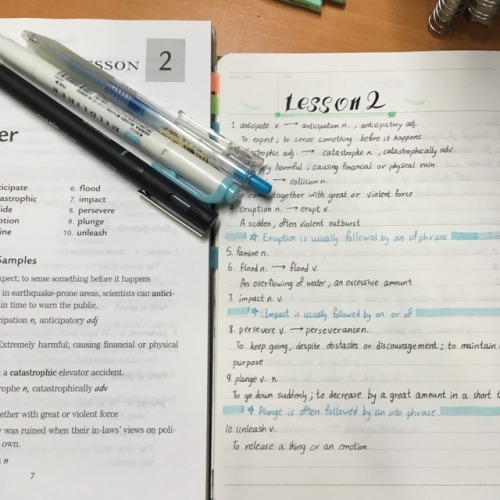 LESSON 2
er
ticipate
6. flood
tastrophic
7. impact
ide
8. persevere
ption
9. plunge
ine
10. unleash
Samples
xpect; to sense something before it happens
in earthquake-prone areas, scientists can antici-
in time to warn the public.
cipation n, anticipatory adj
Extremely harmful; causing financial or physical
a catastrophic elevator accident.
rophe n, catastrophically adv
gether with great or violent force
y was ruined when their in-laws' views on poli-
own.
n
7
Lesson 2
1. anticipate v. → anticipation n., anticipatory adj.
To expect; to sense something before it happens
adj. → catastrophe n., catastrophically adv.
harmful; causing financial or physical ruin
→ collision n.
To come together with great or violent force
4. eruption n. → erupt v.
A sudden, often violent outburst
☆ Eruption is usually followed by an of phrase.
5. famine n.
6. flood n. → flood v.
An overflowing of water, an excessive amount
7. impact n. v.
☆ Impact is usually followed by on or of
8. persevere v. → perseverance n.
To keep going, despite obstacles or discouragement; to maintain a
purpose
9. plunge v. n.
To go down suddenly; to decrease by a great amount in a short t
☆ Plunge is often followed by an into phrase.
10. Unleash v.
To release a thing or an emotion.